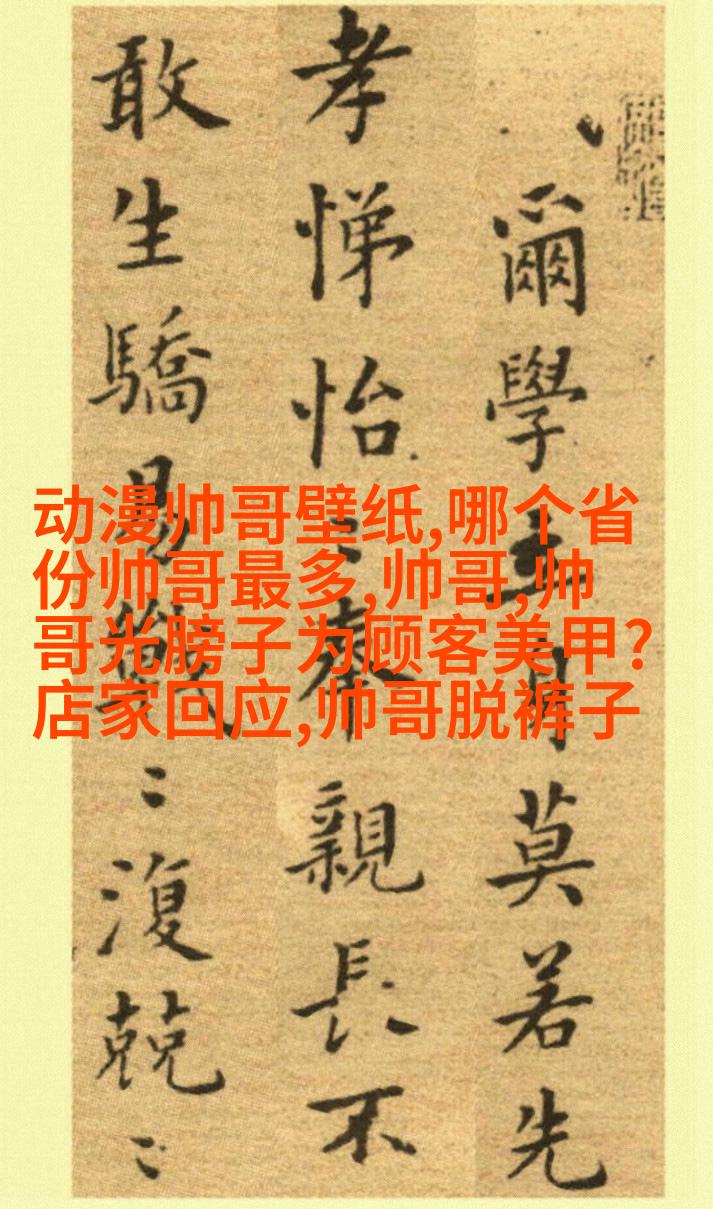 爾學立身莫若先
孝悌怡〻奉親長不
敢生驕易戰〻復兢〻
动漫帅哥壁纸,哪个省
份帅哥最多,帅哥,帅
哥光膀子为顾客美甲?
店家回应,帅哥脱裤子